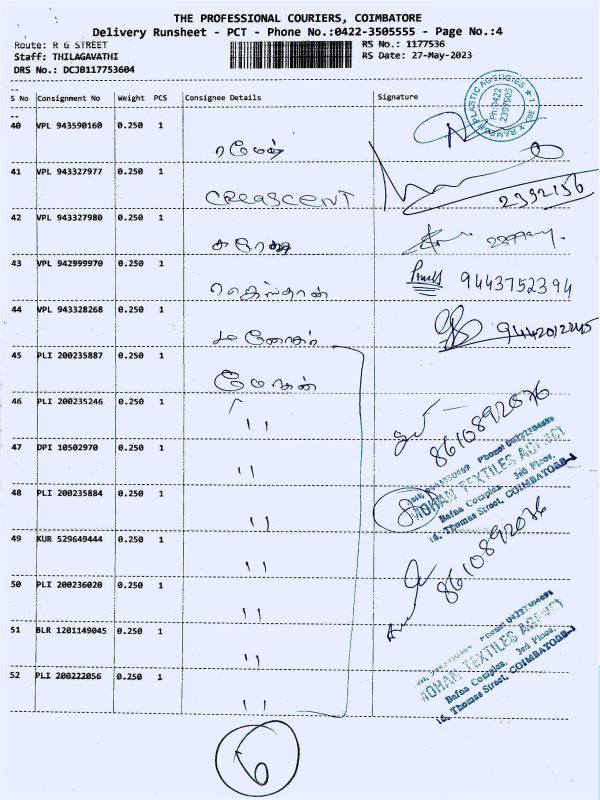 THE PROFESSIONAL COURIERS, COIMBATORE
Delivery Runsheet - PCT - Phone No.:0422-3505555 - Page No.:4
Route: R G STREET
Staff: THILAGAVATHI
DRS No.: DCJB117753604
RS No.: 1177536
RS Date: 27-May-2023
S No Consignment No Weight PCS Consignee Details Signature
40 VPL 943590160 0.250 1
ரமேஷ்
41 VPL 943327977 0.250 1
CREASCENT 2392156
42 VPL 943327980 0.250 1
43 VPL 942999970 0.250 1
9443752394
44 VPL 943328268 0.250 1
மனோகர்
45 PLI 200235887 0.250 1
மோகன்
46 PLI 200235246 0.250 1
" 8610892076
47 DPI 10502970 0.250 1
"
48 PLI 200235884 0.250 1
"
MOHAN TEXTILES AGENCY
Bafna Complex, 3rd Floor,
Thomas Street, COIMBATORE-1
49 KUR 529649444 0.250 1
" 8610892076
50 PLI 200236020 0.250 1
"
51 BLR 1201149045 0.250 1
"
52 PLI 200222056 0.250 1
"
MOHAN TEXTILES AGENCY
Bafna Complex, 3rd Floor,
Thomas Street, COIMBATORE-1
6